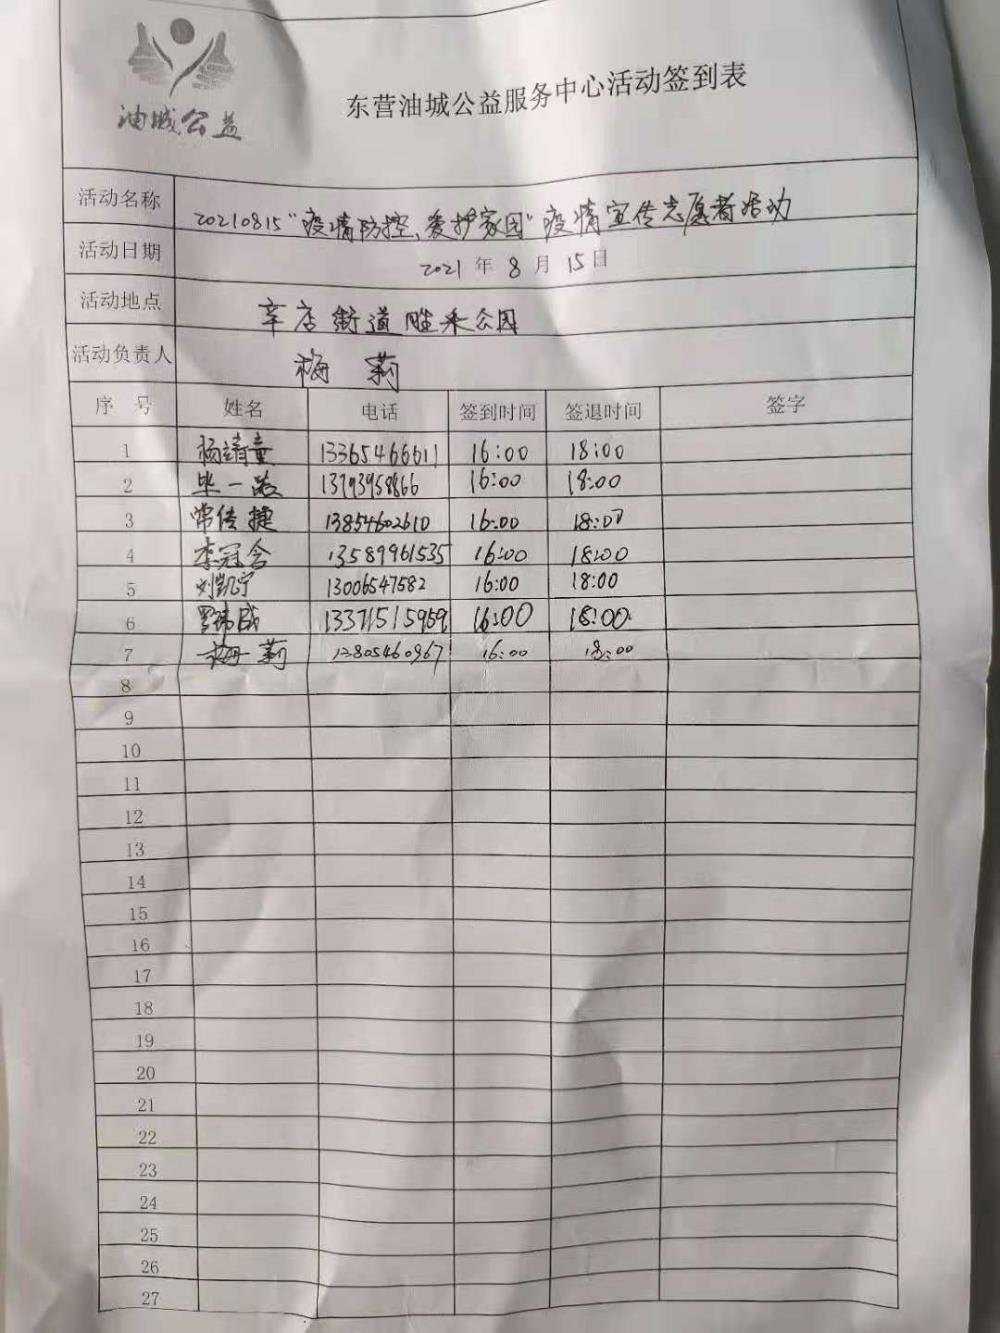 油城公益
东营油城公益服务中心活动签到表
活动名称 20210815"疫情防控、爱护家园"疫情宣传志愿者活动
活动日期 2021年8月15日
活动地点 辛店街道胜采公园
活动负责人 梅莉
序号 姓名 电话 签到时间 签退时间 签字
1 杨靖童 13365466611 16:00 18:00
2 毕一 13793958866 16:00 18:00
3 常传捷 13854602610 16:00 18:00
4 李冠含 13589961535 16:00 18:00
5 刘凯宁 13006547582 16:00 18:00
6 13371515959 16:00 18:00
7 梅莉 13805460967 16:00 18:00
8
9
10
11
12
13
14
15
16
17
18
19
20
21
22
23
24
25
26
27